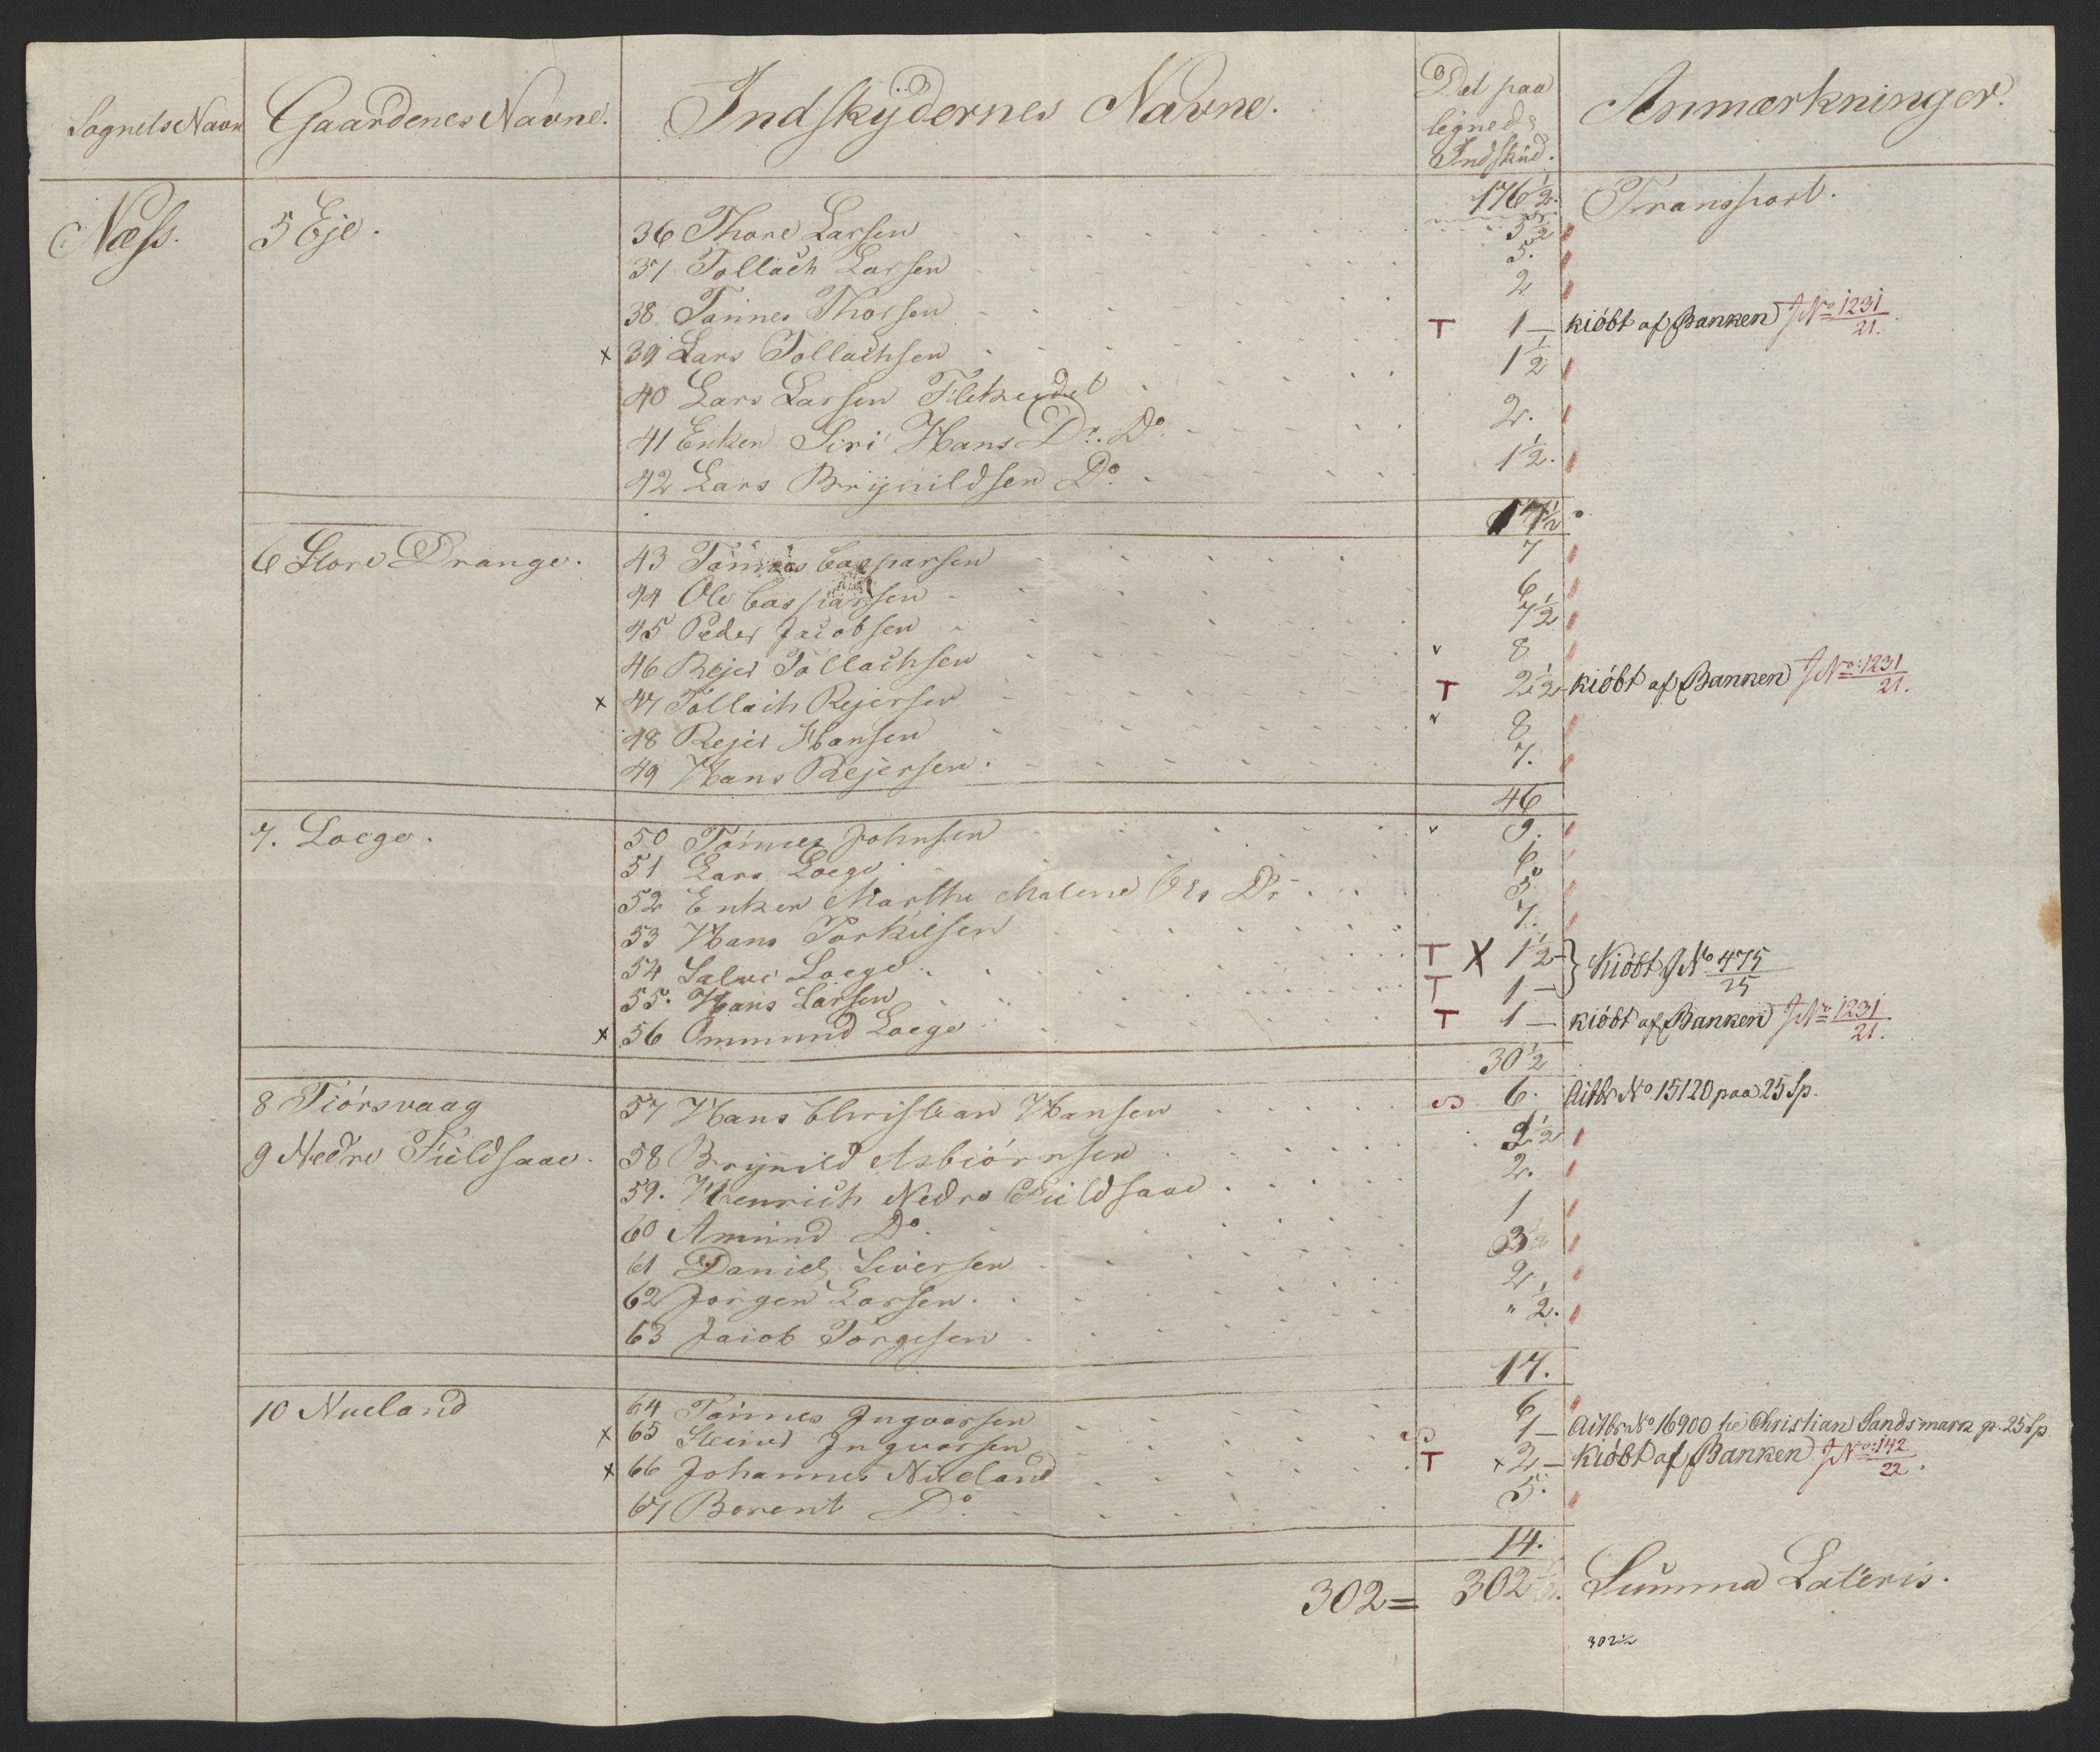 Sognets Navn Gaardenes Navne. Indskÿdernes Navne. Det paa lignede Indskud. Anmærkninger.
176 1/2. Transport.
Næss. 5 Eje. 36 Thore Larsen 3 1/2
37 Tollach Larsen 5.
38 Tønnes Thorsen 2
x 39 Lars Tollachsen T 1 — kiöbt af Banken J No 1231/21.
40 Lars Larsen 1 1/2
41 Enken Siri Hans Dr. Do 2.
42 Lars Brÿnildsen Do. 1 1/2.
17 1/2
6 Store Drange. 43 Tönnes Casparsen 7
44 Ole Casparsen 6
45 Peder Jacobsen 7 1/2
46 Rejer Tollachsen v 8
x 47 Tollach Rejersen T 2 1/2 — kiöbt af Banken J No: 1231/21.
48 Rejer Hansen v 8
49 Hans Rejersen. 7.
46
7. Loege. 50 Tönnes Johnsen v 9.
51 Lars Loege 6
52 Enken Marthe Malene Ols Dr. 5
53 Hans Torkilsen 7.
54 Salve Loege T X 1 1/2 — } Kiöbt J No 475/25
55. Hans Larsen T 1 —
x 56 Ommund Loege T 1 — kiöbt af Banken J No 1231/21.
30 1/2
8 Tiörsvaag 57 Hans Christian Hansen 6. No 15120 paa 25 Sp.
9 Nedre Fieldsaae. 58 Brÿnild Asbiörnsen 1/2
59. Henrich Nedre Fieldsaae 2.
60 Amund Do. 1
61 Daniel Siversen 3
62 Jörgen Larsen. 2
63 Jacob Torgesen " 1/2.
17.
10 Nueland 64 Tönnes Ingvorsen 6
x 65 Ingvorsen 1 — No 16900 Christian Sandsmark 25 Sp
x 66 Johannes Nueland T x 2 — kiöbt af Banken J No: 142/22.
67 Berent Do. 5.
14.
302 = 302 Summa Lateris.
302 1/2